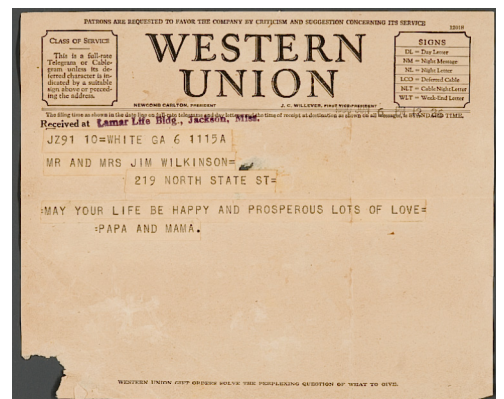 PATRONS ARE REQUESTED TO FAVOR THE COMPANY BY CRITICISM AND SUGGESTION CONCERNING ITS SERVICE
CLASS OF SERVICE
This is a full-rate
Telegram or Cable-
gram unless its de-
ferred character is in-
dicated by a suitable
sign above or preced-
ing the address.
WESTERN
UNION
NEWCOMB CARLTON, PRESIDENT
J. C. WILLEVER, FIRST VICE-PRESIDENT
SIGNS
DL = Day Letter
NM = Night Message
NL = Night Letter
LCO = Deferred Cable
NLT = Cable Night Letter
WLT = Week-End Letter
The filing time as shown in the date line on full-rate telegrams and day letters, and the time of receipt at destination as shown on all messages, is STANDARD TIME.
Received at Lamar Life Bldg., Jackson, Miss.
JZ91 10=WHITE GA 6 1115A
MR AND MRS JIM WILKINSON=
219 NORTH STATE ST=
:MAY YOUR LIFE BE HAPPY AND PROSPEROUS LOTS OF LOVE=
:PAPA AND MAMA.
WESTERN UNION GIFT ORDERS SOLVE THE PERPLEXING QUESTION OF WHAT TO GIVE.